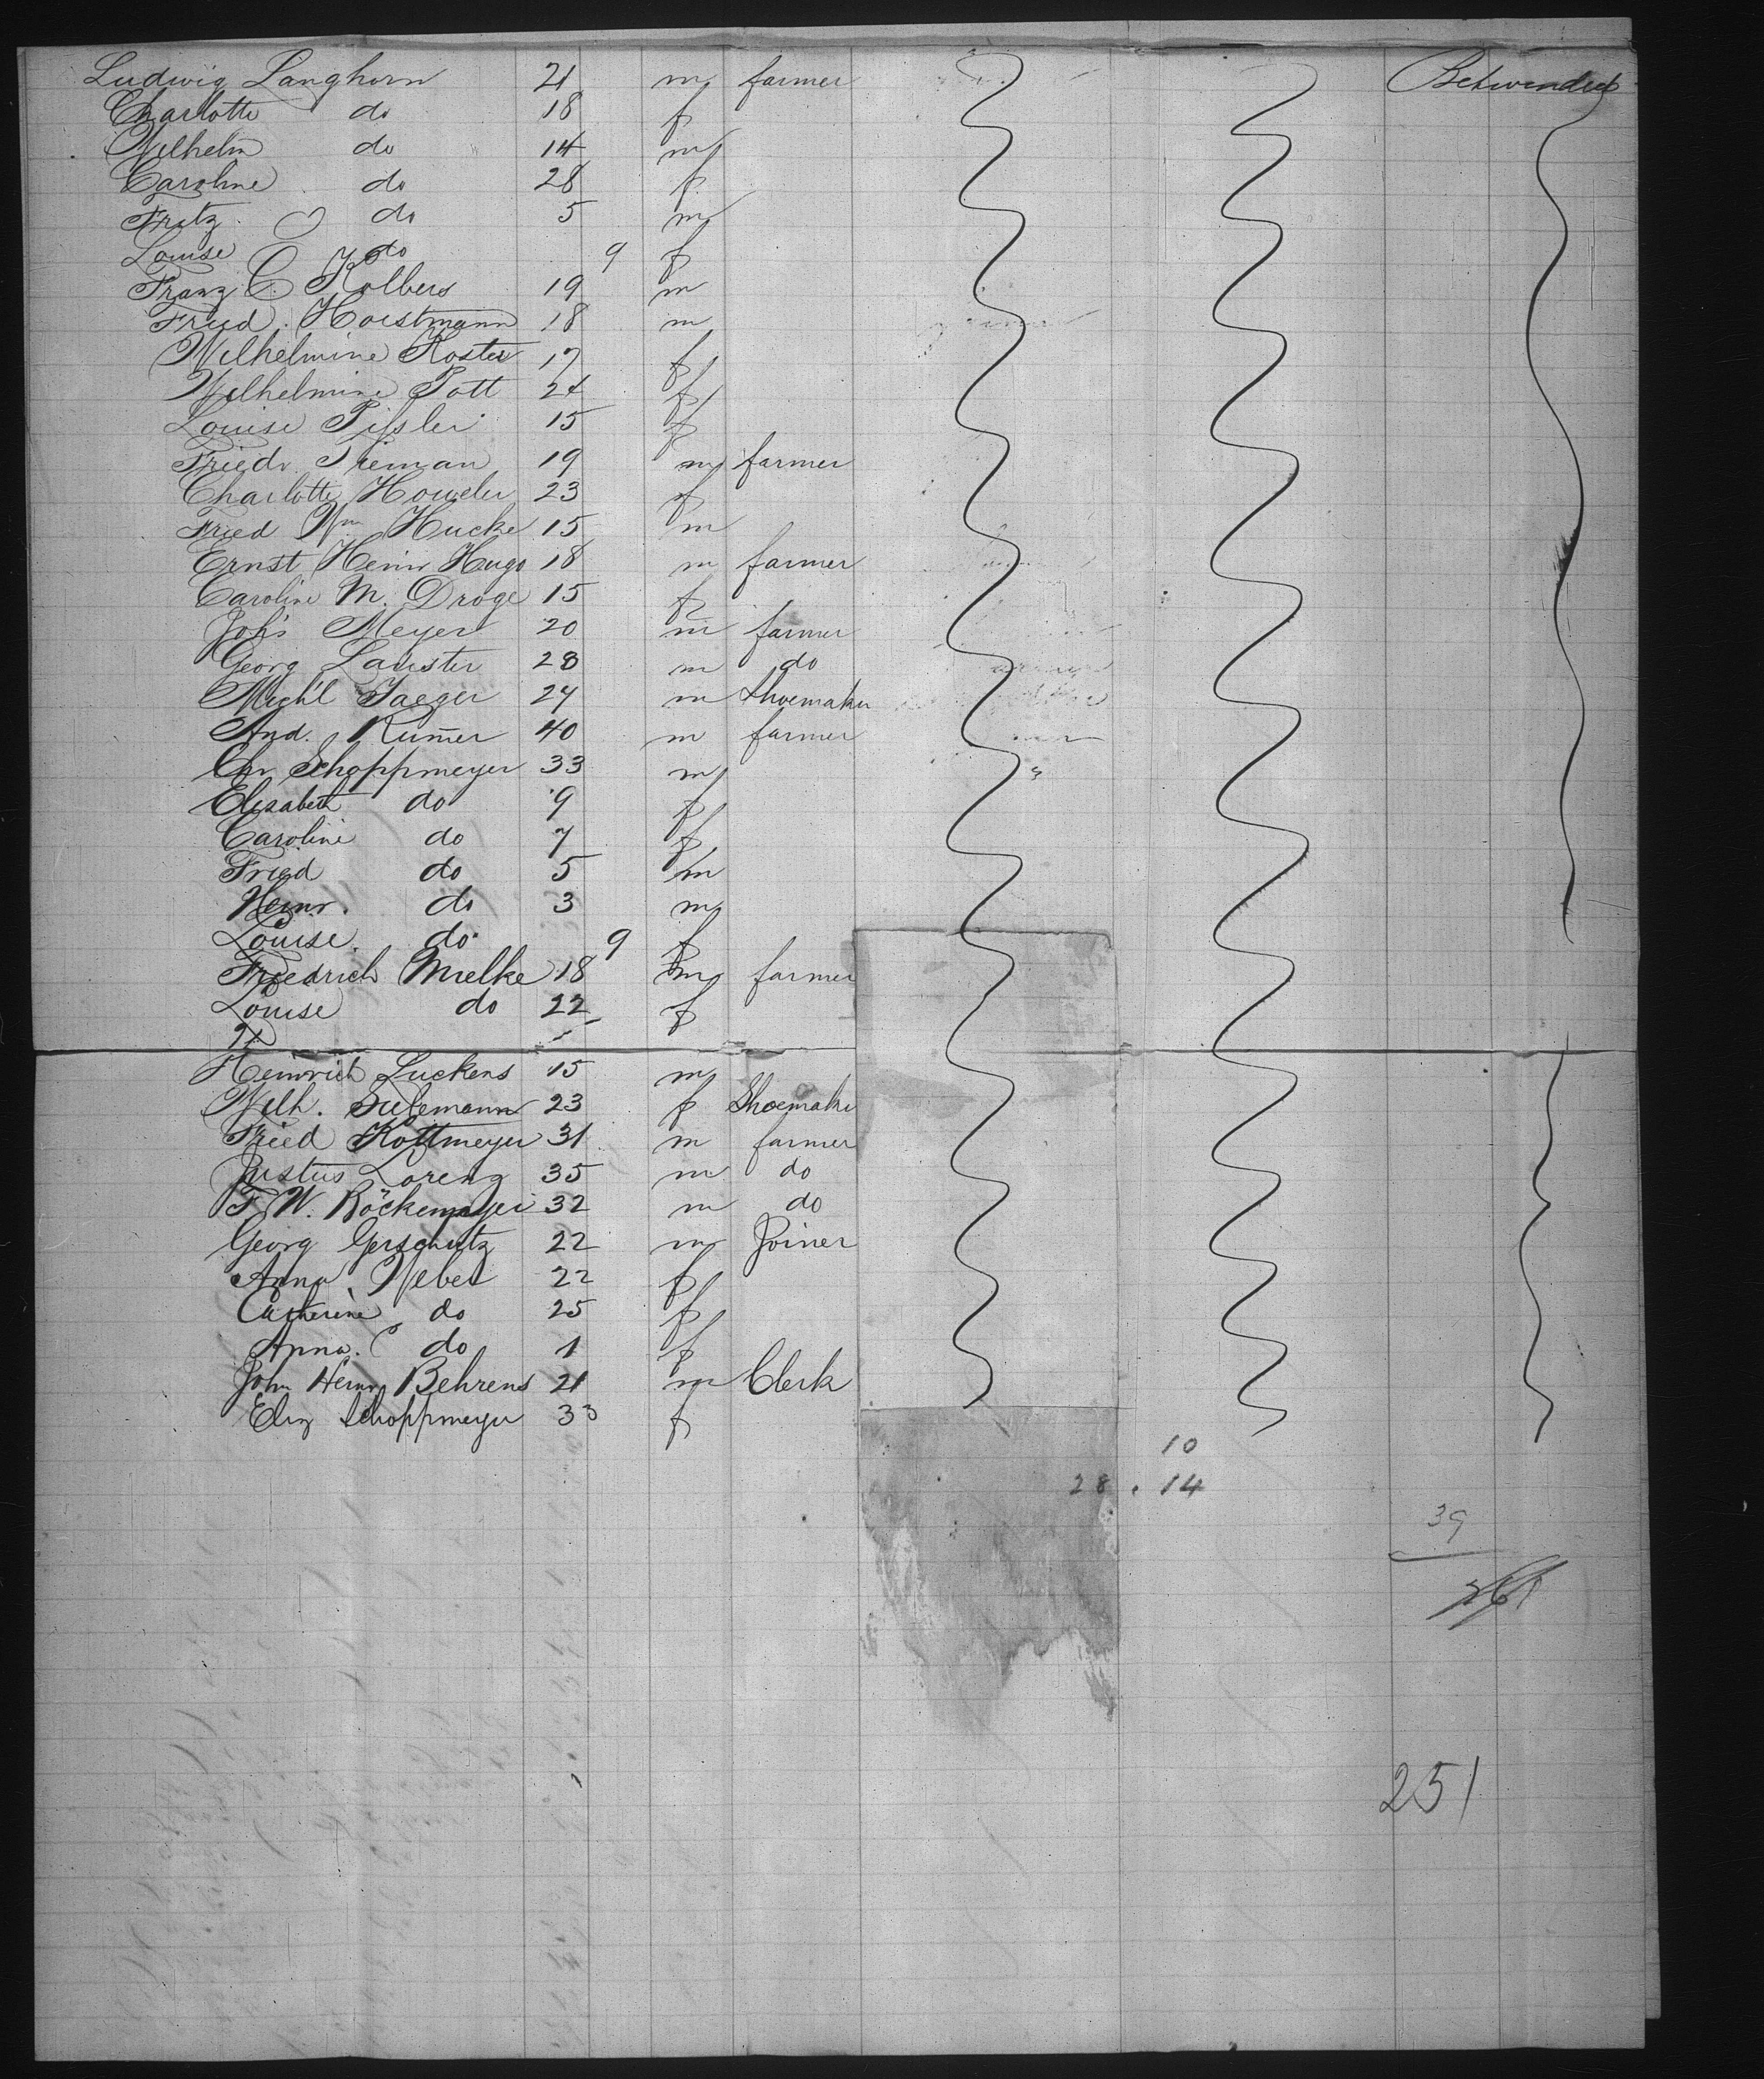 Ludwig Langhorn 21 m farmer Betwendeck
Charlotte do 18 f
Wilhelm do 14 m
Caroline do 28 f
Fritz do 5 m
Louise do 9 f
Franz C. Kolbers 19 m
Fried. Horstmann 18 m
Wilhelmine Koster 17 f
Wilhelmine Pott 24 f
Louise 15 f
Friedr. Tieman 19 m farmer
Charlotte 23 f
Fried Wm Hucke 15 m
Ernst Heinr Hugo 18 m farmer
Caroline M. Droge 15 f
Joh's Meyer 20 m farmer
Georg Lauster 28 m do
Mich'l Jaeger 24 m Shoemaker
And. Kum̄er 40 m farmer
Chr Schoppmeyer 33 m
Elisabeth do 9 f
Caroline do 7 f
Fried do 5 m
Heinr. do 3 m
Louise. do 9 f
Friedrich Mielke 18 m farmer
Louise do 22 f
Heinrich Luckens 15 m
Wilh. 23 f Shoemaker
Fried Kottmeyer 31 m farmer
Justus Lorenz 35 m do
F. W. Böckemeyer 32 m do
Georg Gerschutz 22 m Joiner
Anna Weber 22 f
Catherine do 25 f
Anna. do 1 f
John Heinr Behrens 21 m Clerk
Eliz Schoppmeyer 33 f
10
28 . 14
39
251